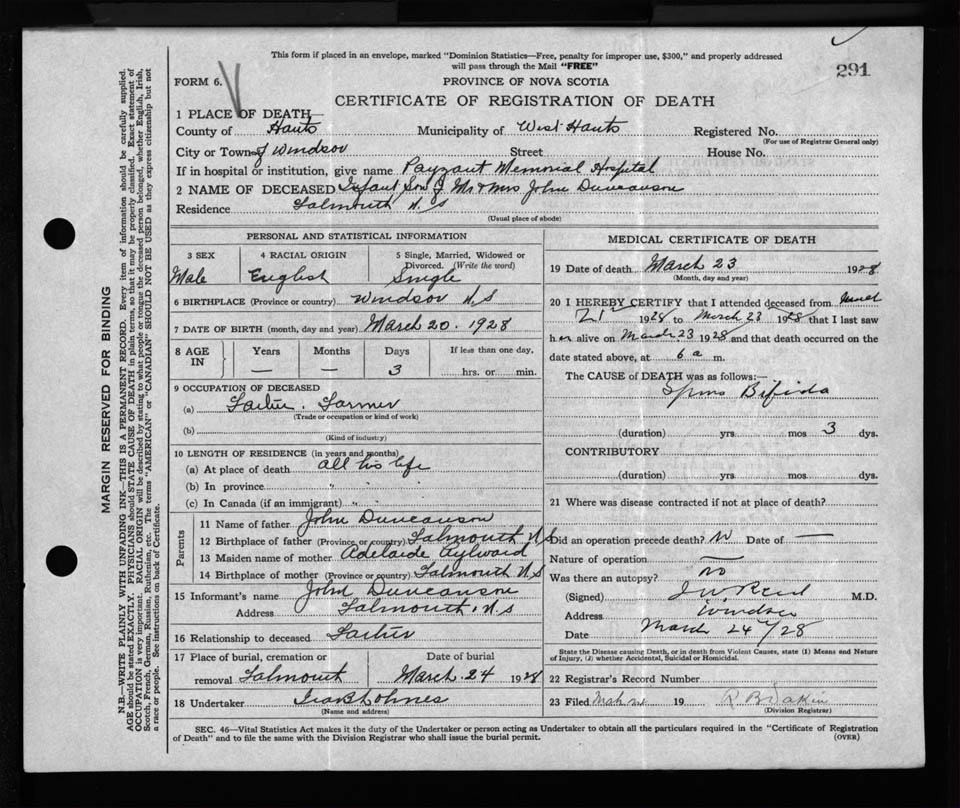 This form if placed in an envelope, marked "Dominion Statistics—Free, penalty for improper use, $300," and properly addressed
will pass through the Mail "FREE"
291
FORM 6.
PROVINCE OF NOVA SCOTIA
CERTIFICATE OF REGISTRATION OF DEATH
1 PLACE OF DEATH—
County of Hants Municipality of West Hants Registered No.
(For use of Registrar General only)
City or Town of Windsor Street House No.
If in hospital or institution, give name Payzant Memorial Hospital
2 NAME OF DECEASED Infant Son of Mr & Mrs John Duncanson
Residence Falmouth N.S
(Usual place of abode)
PERSONAL AND STATISTICAL INFORMATION
3 SEX 4 RACIAL ORIGIN 5 Single, Married, Widowed or Divorced. (Write the word)
Male English Single
6 BIRTHPLACE (Province or country) Windsor N.S
7 DATE OF BIRTH (month, day and year) March 20. 1928
8 AGE IN Years Months Days If less than one day,
— — 3 hrs. or min.
9 OCCUPATION OF DECEASED
(a) Father. Farmer
(Trade or occupation or kind of work)
(b)
(Kind of industry)
10 LENGTH OF RESIDENCE (in years and months)
(a) At place of death all his life
(b) In province "
(c) In Canada (if an immigrant) " "
Parents
11 Name of father John Duncanson
12 Birthplace of father (Province or country) Falmouth N.S
13 Maiden name of mother Adelaide Aylward
14 Birthplace of mother (Province or country) Falmouth N.S
15 Informant's name John Duncanson
Address Falmouth, N.S
16 Relationship to deceased Father
17 Place of burial, cremation or removal Falmouth
Date of burial March 24 1928
18 Undertaker
(Name and address)
MEDICAL CERTIFICATE OF DEATH
19 Date of death March 23 1928
(Month, day and year)
20 I HEREBY CERTIFY that I attended deceased from March
21 1928 to March 23 1928 that I last saw
h alive on March 23 1928 and that death occurred on the
date stated above, at 6 a m.
The CAUSE of DEATH was as follows:—
Spina Bifida
(duration) yrs mos 3 dys.
CONTRIBUTORY
(duration) yrs mos dys.
21 Where was disease contracted if not at place of death?
Did an operation precede death? No Date of —
Nature of operation —
Was there an autopsy? no
(Signed) J W Reid M.D.
Address Windsor
Date March 24/28
State the Disease causing Death, or in death from Violent Causes, state (1) Means and Nature
of Injury, (2) whether Accidental, Suicidal or Homicidal.
22 Registrar's Record Number
23 Filed 19
(Division Registrar)
SEC. 46—Vital Statistics Act makes it the duty of the Undertaker or person acting as Undertaker to obtain all the particulars required in the "Certificate of Registration
of Death" and to file the same with the Division Registrar who shall issue the burial permit.
(OVER)
MARGIN RESERVED FOR BINDING
N.B.—WRITE PLAINLY WITH UNFADING INK—THIS IS A PERMANENT RECORD. Every item of information should be carefully supplied.
AGE should be stated EXACTLY. PHYSICIANS should STATE CAUSE OF DEATH in plain terms, so that it may be properly classified. Exact statement of
OCCUPATION is very important. RACIAL ORIGIN will be described by stating to what people or tongue the deceased person belonged, whether English, Irish,
Scotch, French, German, Russian, Ruthenian, etc. The terms "AMERICAN" or "CANADIAN" SHOULD NOT BE USED as they express citizenship but not
a race or people. See instructions on back of Certificate.